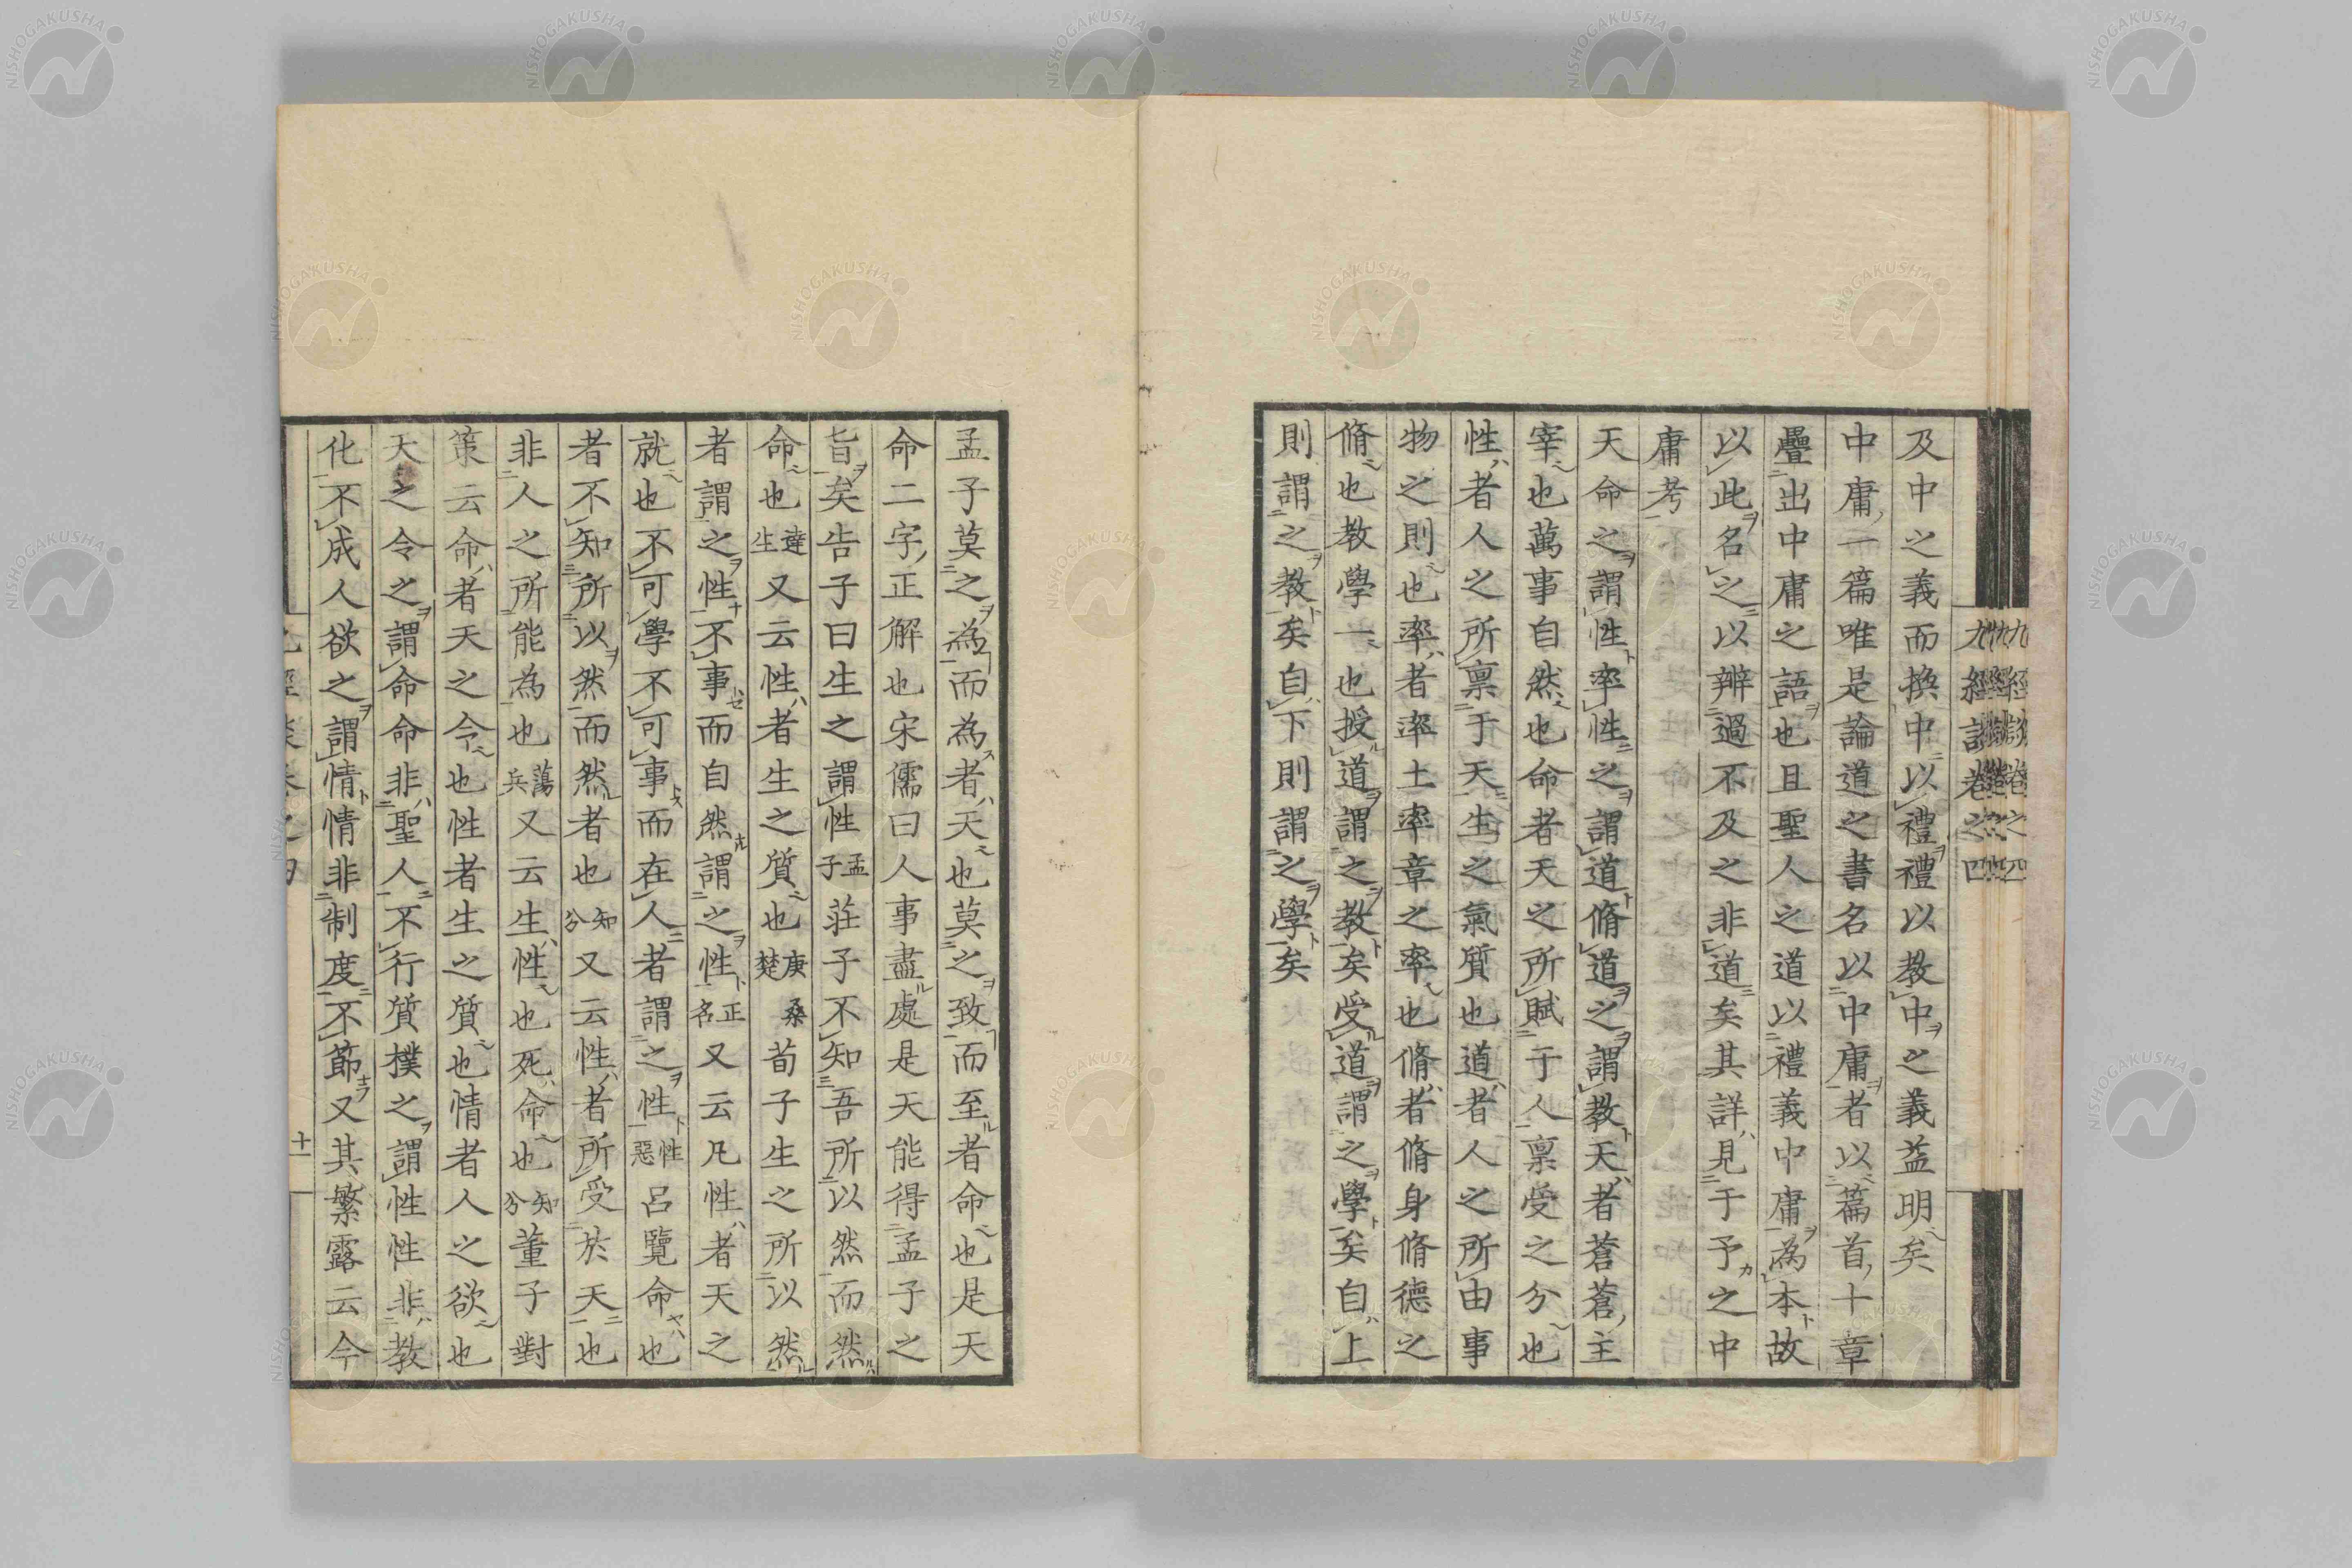 九經談卷之四
及中之義而換中以禮禮以教中之義益明矣
中庸一篇唯是論道之書名以中庸者以篇首十章
疊出中庸之語也且聖人之道以禮義中庸為本故
以此名之以辨過不及之非道矣其詳見于予之中
庸考
天命之謂性率性之謂道脩道之謂教天者蒼蒼主
宰也萬事自然也命者天之所賦于人稟受之分也
性者人之所稟于天生之氣質也道者人之所由事
物之則也率者率土率章之率也脩者脩身脩德之
脩也教學一也授道謂之教矣受道謂之學矣自上
則謂之教矣自下則謂之學矣
孟子莫之為而為者天也莫之致而至者命也是天
命二字正解也宋儒曰人事盡處是天能得孟子之
旨矣告子曰生之謂性孟子莊子不知吾所以然而然
命也達生又云性者生之質也庚桑楚荀子生之所以然
者謂之性不事而自然謂之性正名又云凡性者天之
就也不可學不可事而在人者謂之性性惡呂覽命也
者不知所以然而然者也知分又云性者所受於天也
非人之所能為也蕩兵又云生性也死命也知分董子對
策云命者天之令也性者生之質也情者人之欲也
天之令之謂命命非聖人不行質樸之謂性性非教
化不成人欲之謂情情非制度不節又其繁露云今
十一
NISHOGAKUSHA